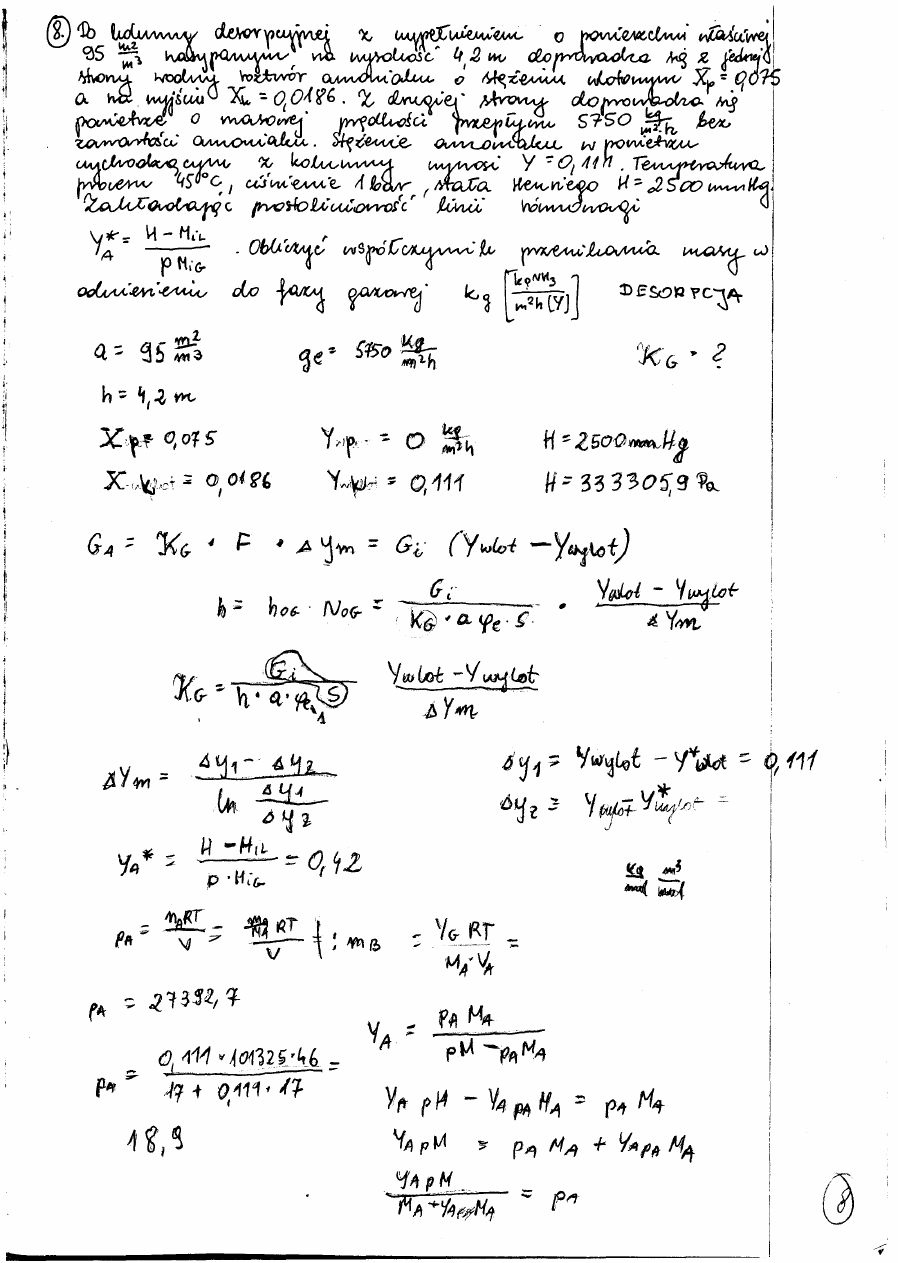 8. Do kolumny desorpcyjnej z wypełnieniem o powierzchni właściwej
95 m²/m³ nasypanym na wysokość 4,2 m doprowadza się z jednej
strony wodny roztwór amoniaku o stężeniu wlotowym X̄p = 0,075
a na wyjściu X̄k = 0,0186. Z drugiej strony doprowadza się
powietrze o masowej prędkości przepływu 5750 kg/m²·h bez
zawartości amoniaku. Stężenie amoniaku w powietrzu
wychodzącym z kolumny wynosi Y = 0,111. Temperatura
procesu 45°C, ciśnienie 1 bar, stała Henry'ego H = 2500 mmHg.
Zakładając prostoliniowość linii równowagi
Y*A = H - MiL / p MiG . Obliczyć współczynnik przenikania masy w
odniesieniu do fazy gazowej kg [kgNH3 / m²h(Y)] DESORPCJA
a = 95 m²/m³ ge = 5750 kg/m²h KG = ?
h = 4,2 m
Xp = 0,075 Yp = 0 kg/m²h H = 2500 mmHg
X = 0,0186 Y = 0,111 H = 333305,9 Pa
GA = KG · F · ΔYm = Gi (Ywlot - Ywylot)
h = hOG · NOG = Gi / KG · a φe · S · Ywlot - Ywylot / ΔYm
KG = Gi / h · a · φe · S Ywlot - Ywylot / ΔYm
1
ΔYm = Δy1 - Δy2 / ln Δy1/Δy2 Δy1 = Ywylot - Y*wlot = 0,111
Δy2 = Ywylot - Y*wylot =
YA* = H - MiL / p · MiG = 0,42 kg/mol m³/mol
pA = nART / V = mA/MA RT / V | : mB = YG RT / MA · VA =
pA = 27392,7
YA = pA MA / pM - pA MA
pA = 0,111 · 101325 · 46 / 17 + 0,111 · 17 =
YA pM - YA pA MA = pA MA
18,9 YA pM = pA MA + YA pA MA
YA pM / MA + YA MA = pA
8